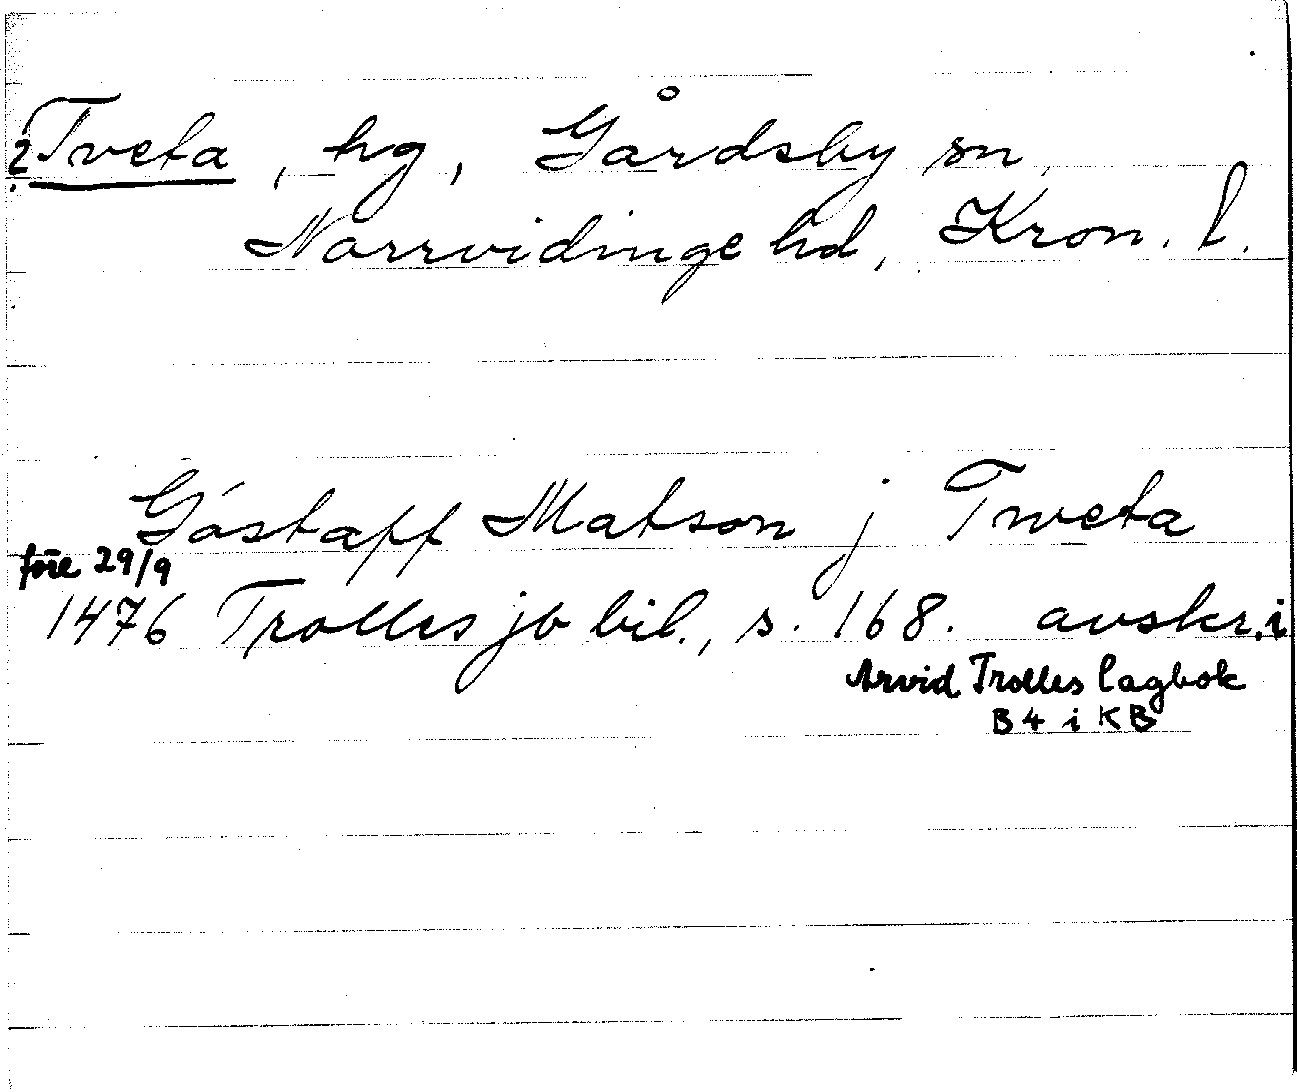 ? Tveta, hg, Gårdsby sn,
Norrvidinge hd, Kron. l.
Göstaff Matson j Tweta
före 29/9
1476 Trolles jb bil., s. 168. avskr. i
Arvid Trolles lagbok
B 4 i KB